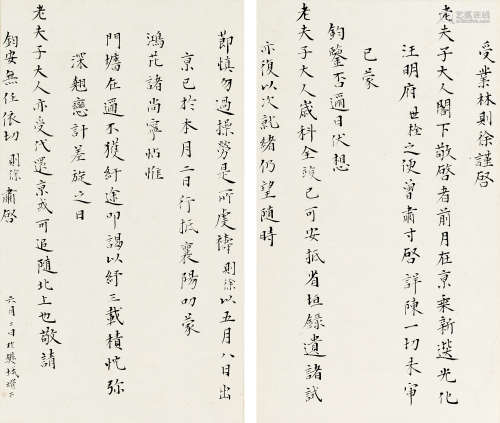 受業林則徐謹啓
老夫子大人閣下敬啓者前月在京乘新選光化
汪明府世拴之便曾肅寸啓詳陳一切未审
鈞鑒否邇日伏想
已蒙
老夫子大人歲科全竣已可安抵省垣錄遺諸試
亦復以次就緒仍望隨時
節慎勿過操勞是所虔禱則徐以五月八日出
京已於本月二日行抵襄陽叩蒙
鴻庇諸尚寧帖惟
門墻在邇不獲紆途叩謁以紓三載積忱彌
深翹戀計差旋之日
老夫子大人亦受代還京或可追隨北上也敬請
鈞安無任依切則徐肅啓
六月二日